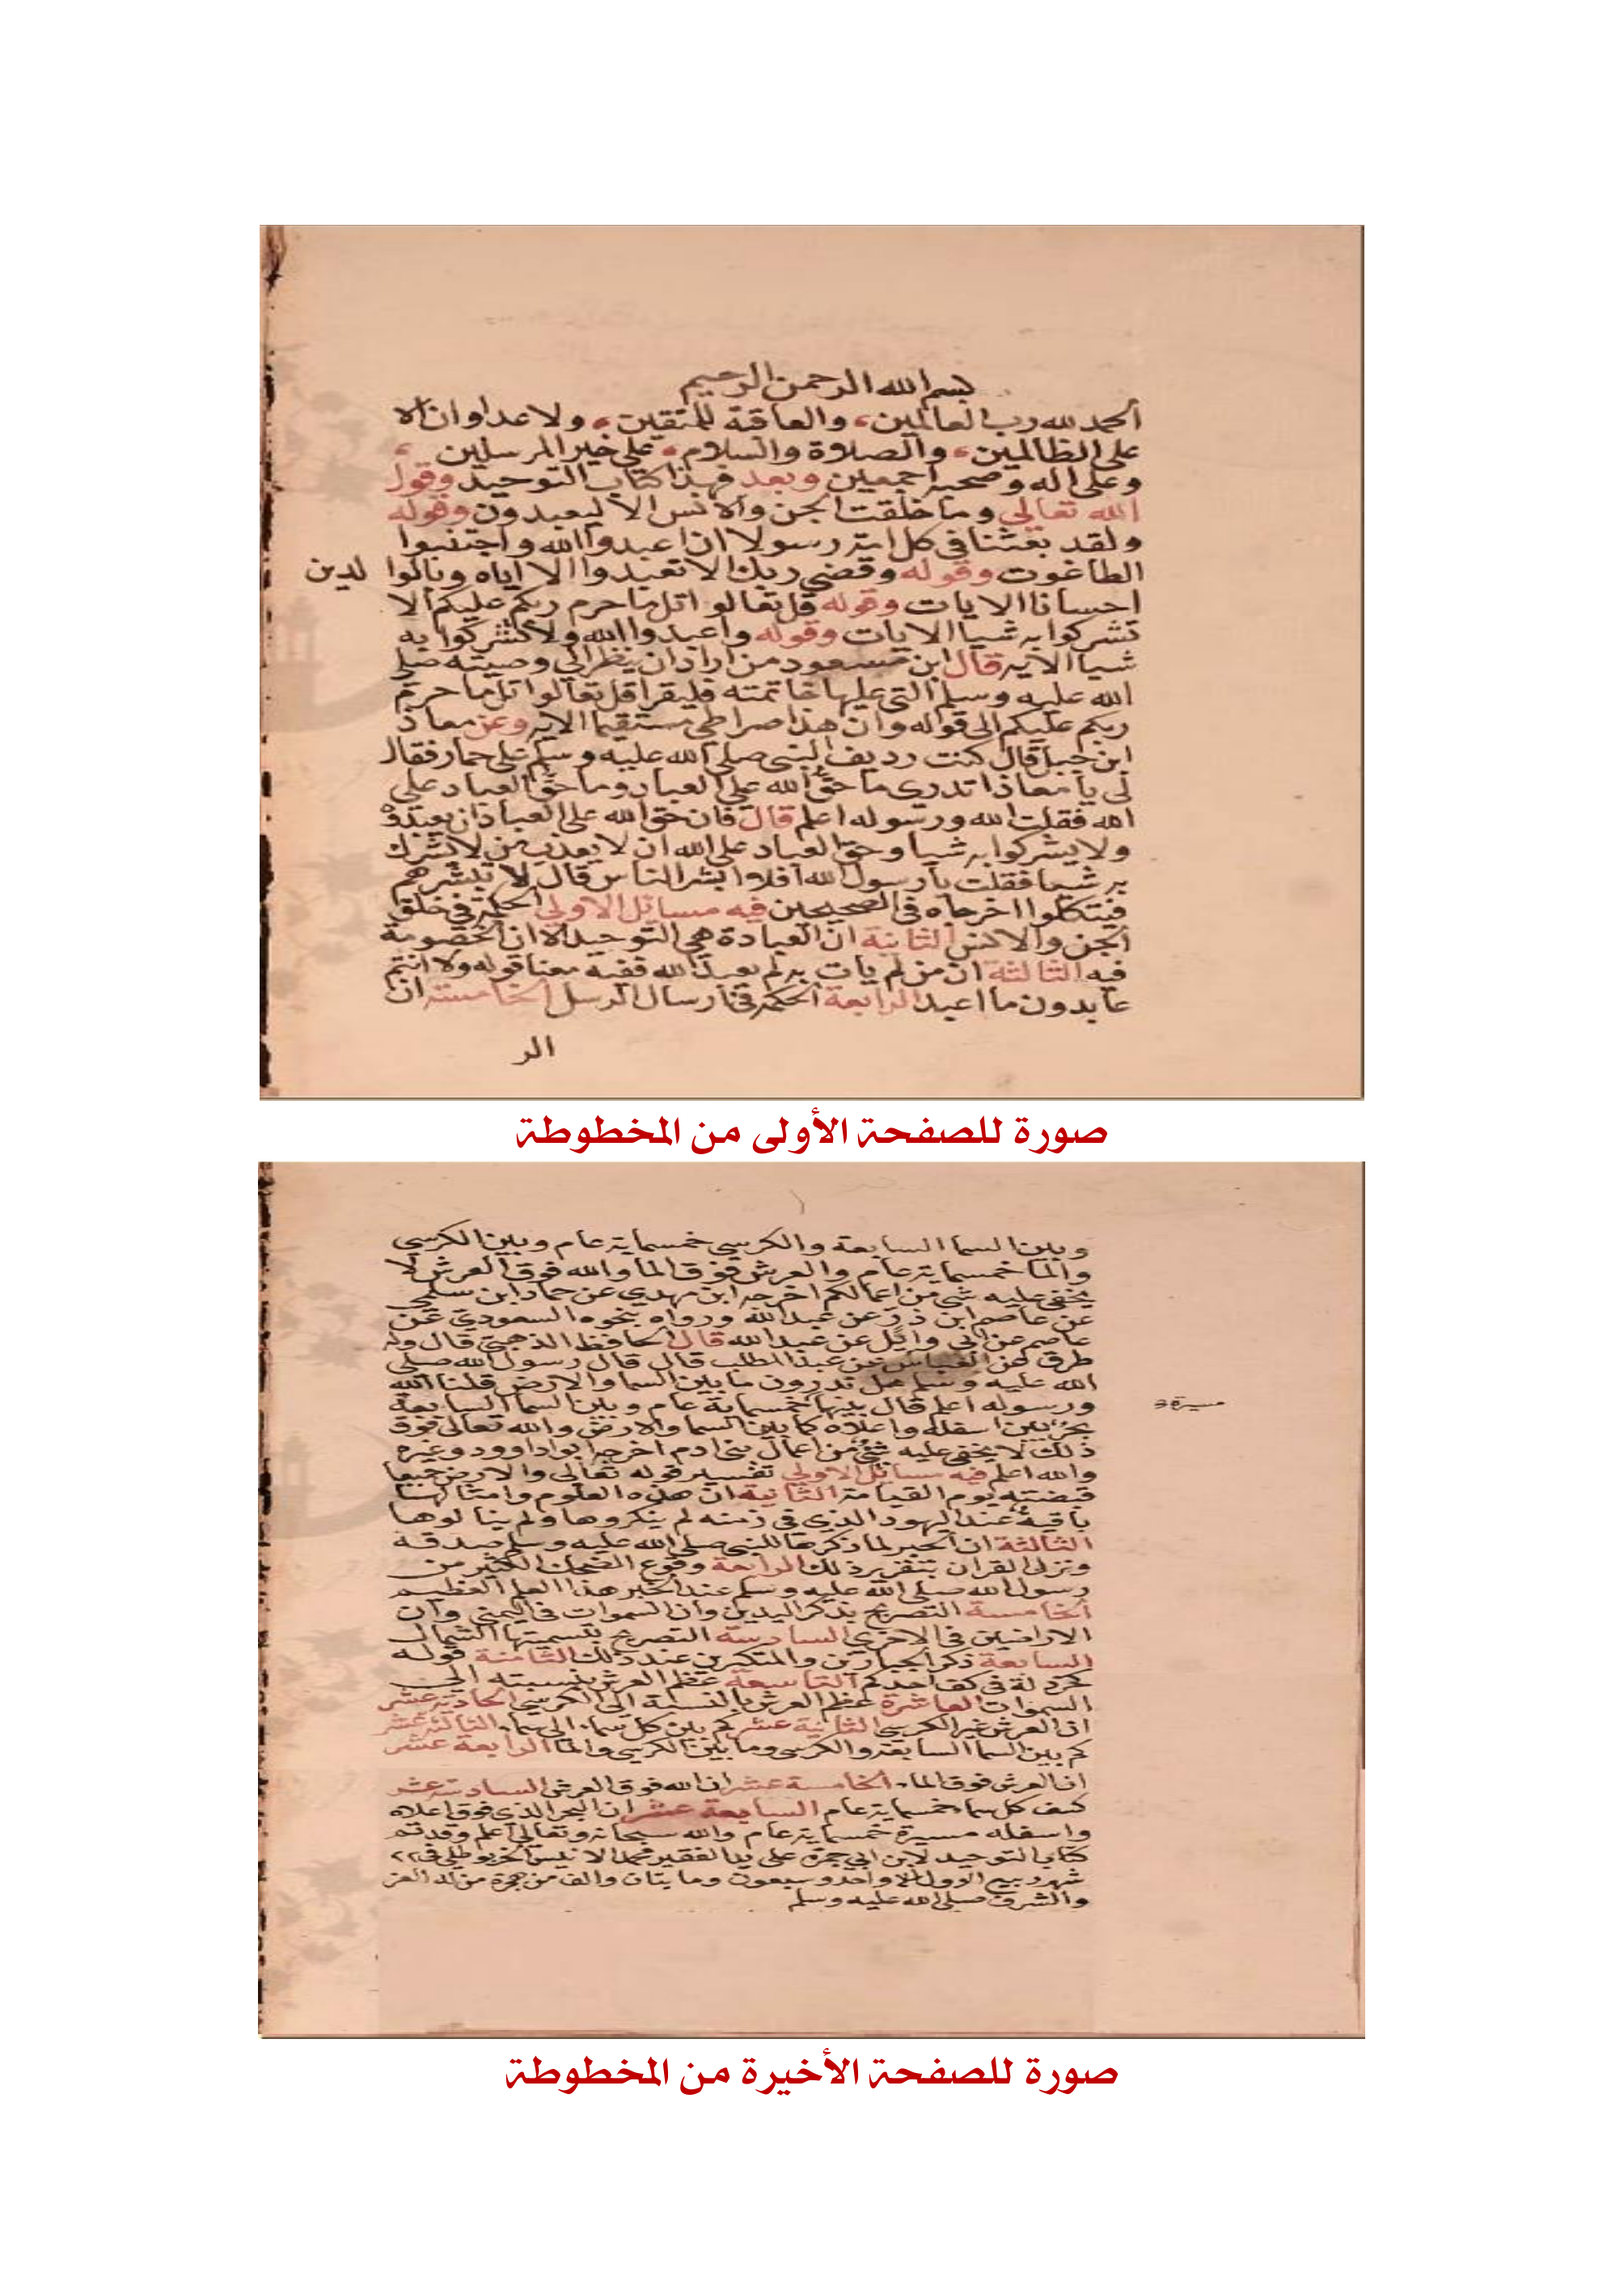 بسم الله الرحمن الرحيم
الحمد لله رب العالمين، والعاقة للمتقين، ولا عداوان الا
على الظالمين، والصلاة والسلام، على خير المرسلين،
وعلى اله وصحبه اجمعين وبعد فهذا كتاب التوحيد وقول
الله تعالى وما خلقت الجن والانس الا ليعبدون وقوله
ولقد بعثنا في كل امة رسولا ان اعبدوا الله واجتنبوا
الطاغوت وقوله وقضى ربك الا تعبدوا الا اياه وبالوا لدين
احسانا الايات وقوله قل تعالو اتل ما حرم ربكم عليكم الا
تشركوا به شيا الايات وقوله واعبدوا الله ولا تشركوا به
شيا الايه قال ابن مسعود من اراد ان ينظر الى وصيته صلى
الله عليه وسلم التي عليها خاتمته فليقرا قل تعالوا اتل ما حرم
ربكم عليكم الى قوله وان هذا صراطي مستقيما الايه وعن معاذ
ابن جبل قال كنت رديف النبي صلى الله عليه وسلم على حمار فقال
لي يا معاذ اتدرى ما حق الله على العباد وما حق العباد على
الله فقلت الله ورسوله اعلم قال فان حق الله على العباد ان يعبدوه
ولا يشركوا به شيا وحق العباد على الله ان لا يعذب من لا يشرك
به شيا فقلت يا رسول الله افلا ابشر الناس قال لا تبشرهم
فيتكلوا اخرجاه في الصحيحين فيه مسائل الاولى الحكمة في خلق
الجن والانس الثانية ان العبادة هي التوحيد لان الخصومة
فيه الثالثة ان من لم يات به لم يعبد الله ففيه معنا قوله ولا انتم
عابدون ما اعبد الرابعة الحكمة في ارسال الرسل الخامسة ان
الر
صورة للصفحة الأولى من المخطوطة
وبين السما السابعة والكرسي خمسماية عام وبين الكرسي
والما خمسماية عام والعرش فوق الما والله فوق العرش لا
يخفى عليه شي من اعمالكم اخرجه ابن مهدي عن حماد ابن سلمى
عن عاصم ابن ذر عن عبد الله ورواه بنحوه السعودي عن
عاصم عن ابي وايل عن عبد الله قال الحافظ الذهبي قال وله
طرق عن العباس بن عبد المطلب قال قال رسول الله صلى
الله عليه وسلم هل تدرون ما بين السما والارض قلنا الله
ورسوله اعلم قال بينهما خمسماية عام وبين السما السابعة
مسيرة
بحر بين اسفله واعلاه كما بين السما والارض والله تعالى فوق
ذلك لا يخفى عليه شي من اعمال بني ادم اخرجه ابوا داوود وغيره
والله اعلم فيه مسائل الاولى تفسير قوله تعالى والارض جميعا
قبضته يوم القيامة الثانية ان هذه العلوم وامثالها
باقية عند اليهود الذي في زمنه لم ينكروها ولم يتا لوها
الثالثة ان الحبر لما ذكرها للنبي صلى الله عليه وسلم صدقه
ونزل القران بتقرير ذلك الرابعة وقوع الضحك الكثير من
رسول الله صلى الله عليه وسلم عند الحبر هذا العلم العظيم
الخامسة التصريح بذكر اليدين وان السموات في اليمنى وان
الاراضين في الاخرى السادسة التصريح بتسميتها الشمال
السابعة ذكر الجبارين والمتكبرين عند ذلك الثامنة قوله
كخردلة في كف احدكم التاسعة عظم العرش بنسبته الى
السموات العاشرة عظم العرش بالنسبة الى الكرسي الحادية عشر
ان العرش غير الكرسي الثانية عشر كم بين كل سماء الى سماء الثالثة عشر
كم بين السما السابعة والكرسي وما بين الكرسي والما الرابعة عشر
ان العرش فوق الماء الخامسة عشر ان الله فوق العرش السادسة عشر
كثف كل سماء خمسماية عام السابعة عشر ان البحر الذي فوق اعلاه
واسفله مسيرة خمسماية عام والله سبحانه وتعالى اعلم وقد تم
كتاب التوحيد لابن ابي جمرة على يد الفقير محمد
شهر ربيع الاول واحد وسبعون ومايتان والف من هجرة من له العز
والشرف صلى الله عليه وسلم
صورة للصفحة الأخيرة من المخطوطة